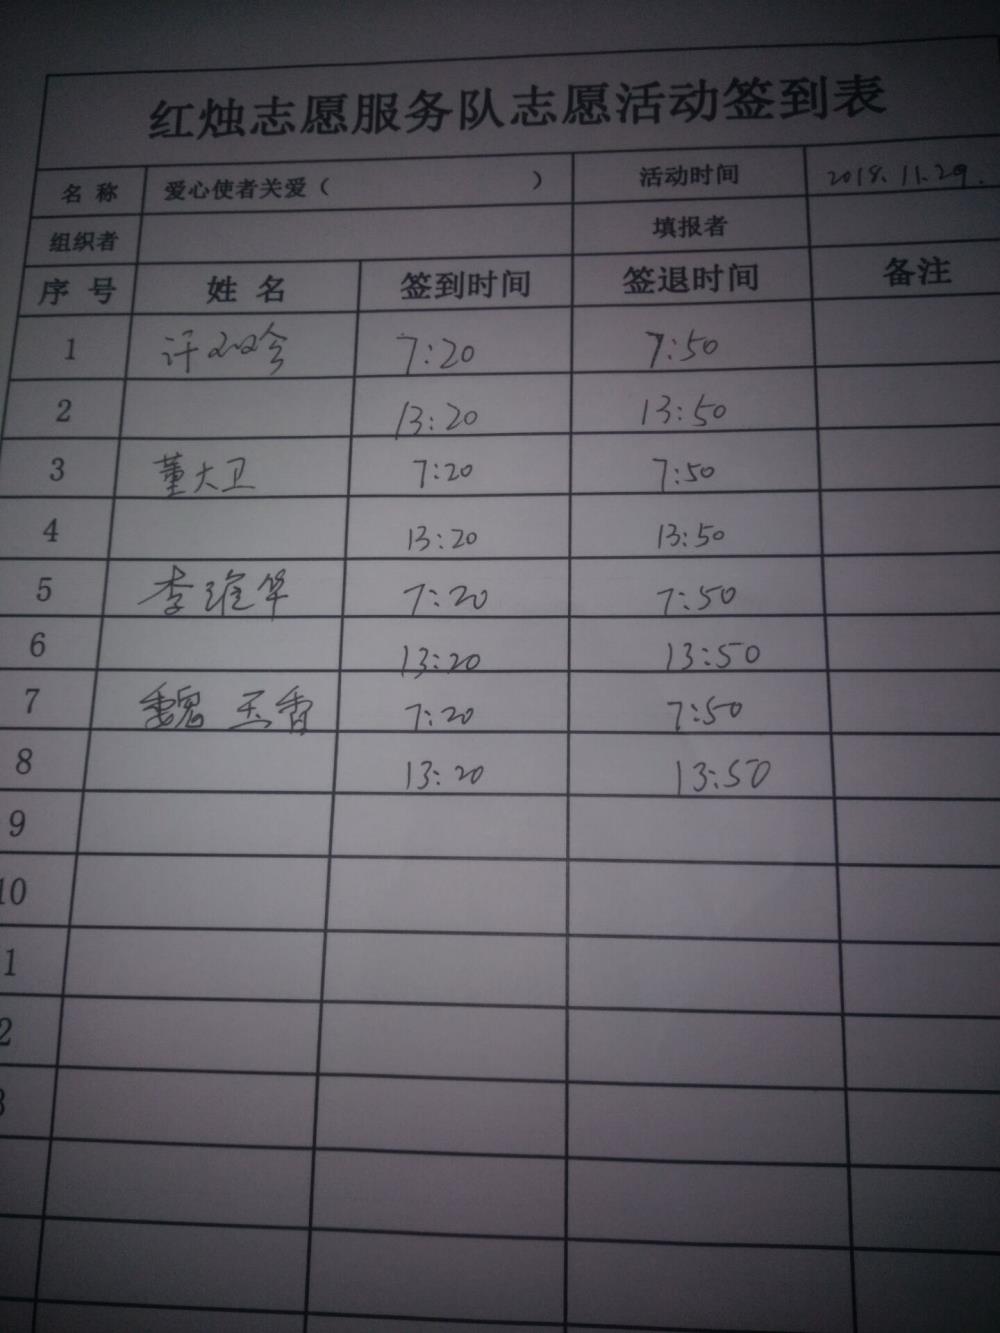 红烛志愿服务队志愿活动签到表
名 称 爱心使者关爱（ ） 活动时间 2018.11.29.
组织者 填报者
序 号 姓 名 签到时间 签退时间 备注
1 许双令 7:20 7:50
2 13:20 13:50
3 董大卫 7:20 7:50
4 13:20 13:50
5 李维华 7:20 7:50
6 13:20 13:50
7 魏玉香 7:20 7:50
8 13:20 13:50
9
10
1
2
3